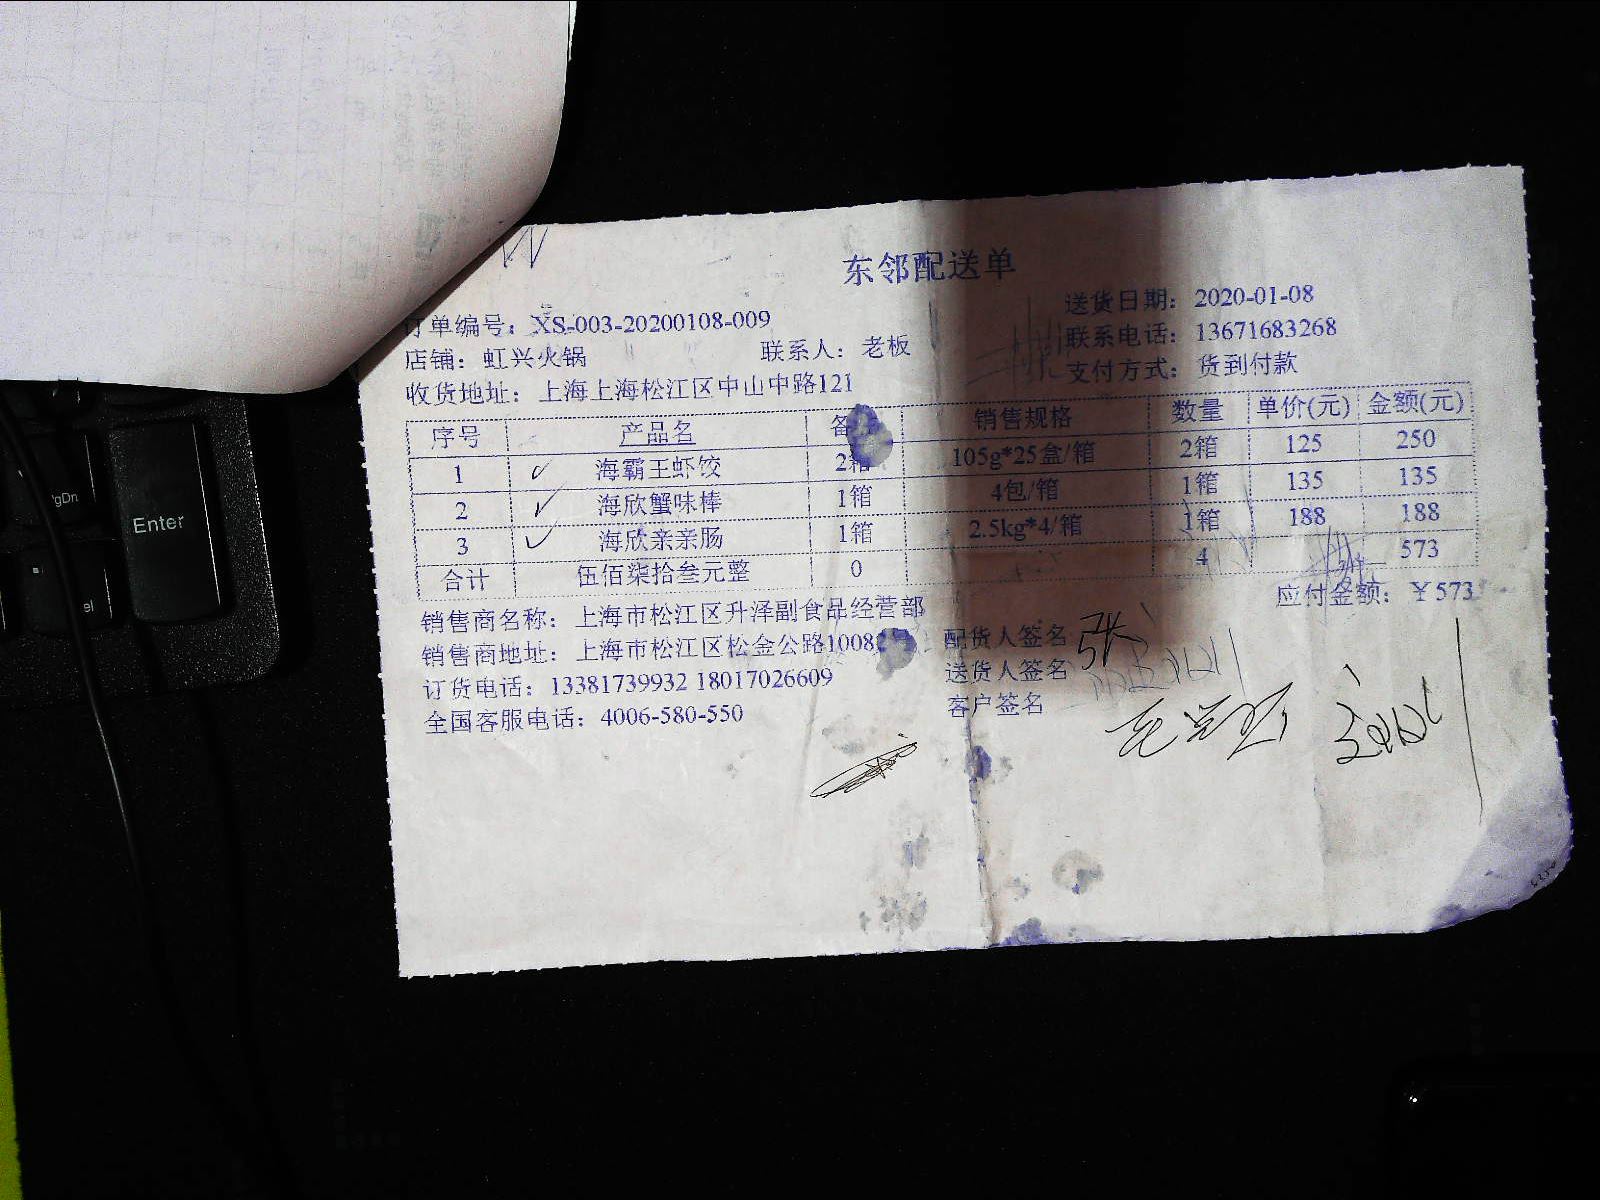 东邻配送单
订单编号：XS-003-20200108-009 送货日期：2020-01-08
店铺：虹兴火锅 联系人：老板 联系电话：13671683268
收货地址：上海上海松江区中山中路121 支付方式：货到付款
序号 产品名 备 销售规格 数量 单价(元) 金额(元)
1 海霸王虾饺 2箱 105g*25盒/箱 2箱 125 250
2 海欣蟹味棒 1箱 4包/箱 1箱 135 135
3 海欣亲亲肠 1箱 2.5kg*4/箱 1箱 188 188
合计 伍佰柒拾叁元整 0 4 573
应付金额：￥573
销售商名称：上海市松江区升泽副食品经营部 配货人签名 张
销售商地址：上海市松江区松金公路1008 送货人签名
订货电话：13381739932 18017026609 客户签名
全国客服电话：4006-580-550
Enter
gDn
el